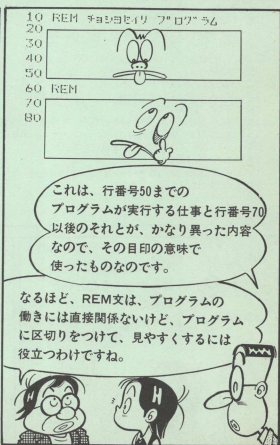 10 REM チョシヨセイリ プログラム
20
30
40
50
60 REM
70
80
これは、行番号50までの
プログラムが実行する仕事と行番号70
以後のそれとが、かなり異った内容
なので、その目印の意味で
使ったものなのです。
なるほど、REM文は、プログラムの
働きには直接関係ないけど、プログラム
に区切りをつけて、見やすくするには
役立つわけですね。
H
H